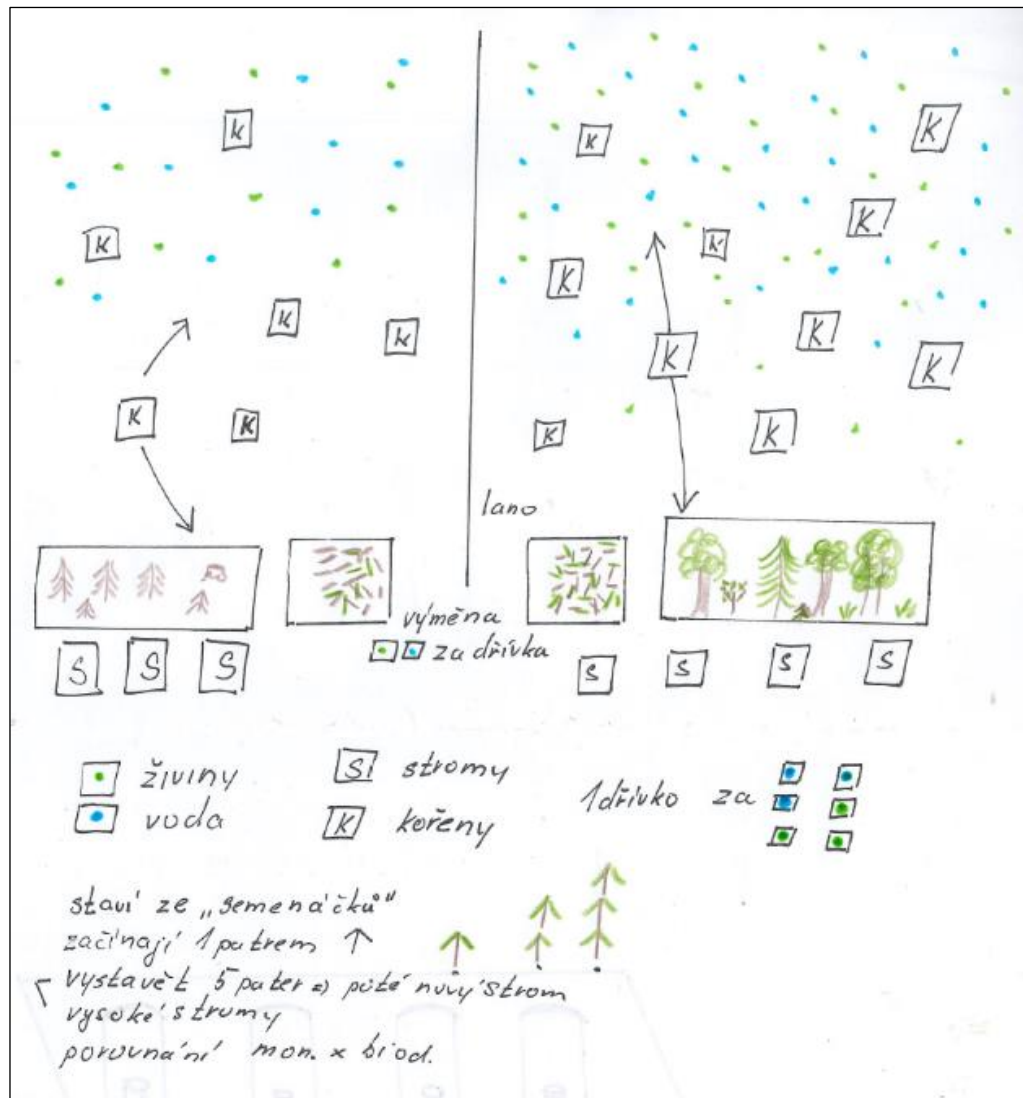 K K K
K K K
K
K K K
K K
K K K K
lano
výměna
za dřívka
S S S S S S S
živiny
voda
S stromy
K kořeny
1 dřívko za
staví ze „semenáčků"
začínají 1 patrem
vystavět 5 pater => páté nový strom
vysoké stromy
porovnání mon. x biod.